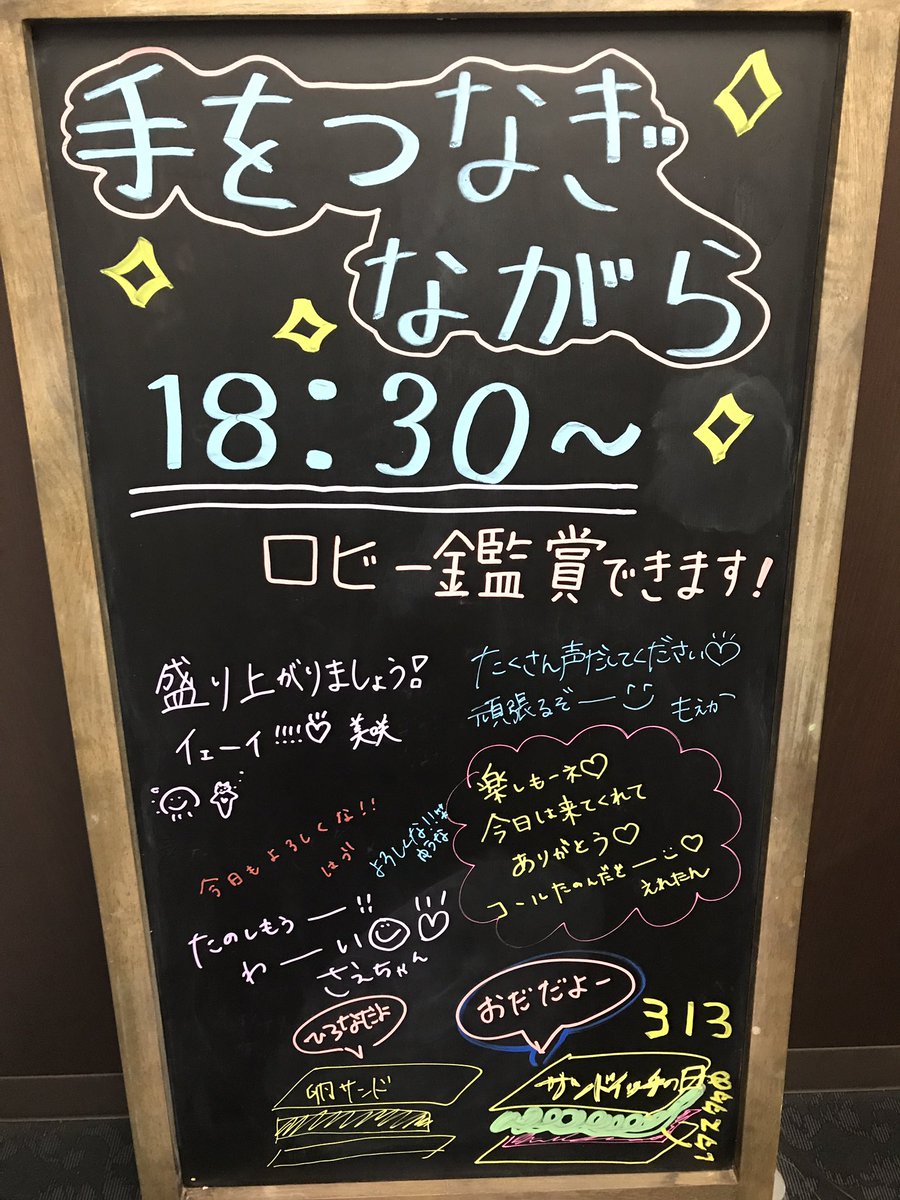 手をつなぎ
ながら
18:30〜
ロビー鑑賞できます!
盛り上がりましょう!
イェーイ!!!!♡ 美咲
たくさん声だしてください♡
頑張るぞー もえか
楽しもーネ♡
今日は来てくれて
ありがとう♡
コールたのんだぞー♡
えれたん
今日もよろしくな!!
よろしくな!!
ゆうな
たのしもうー!!
わーい
さえちゃん
ひろなだよ
おだだよー
313
卵サンド
サンドイッチの日